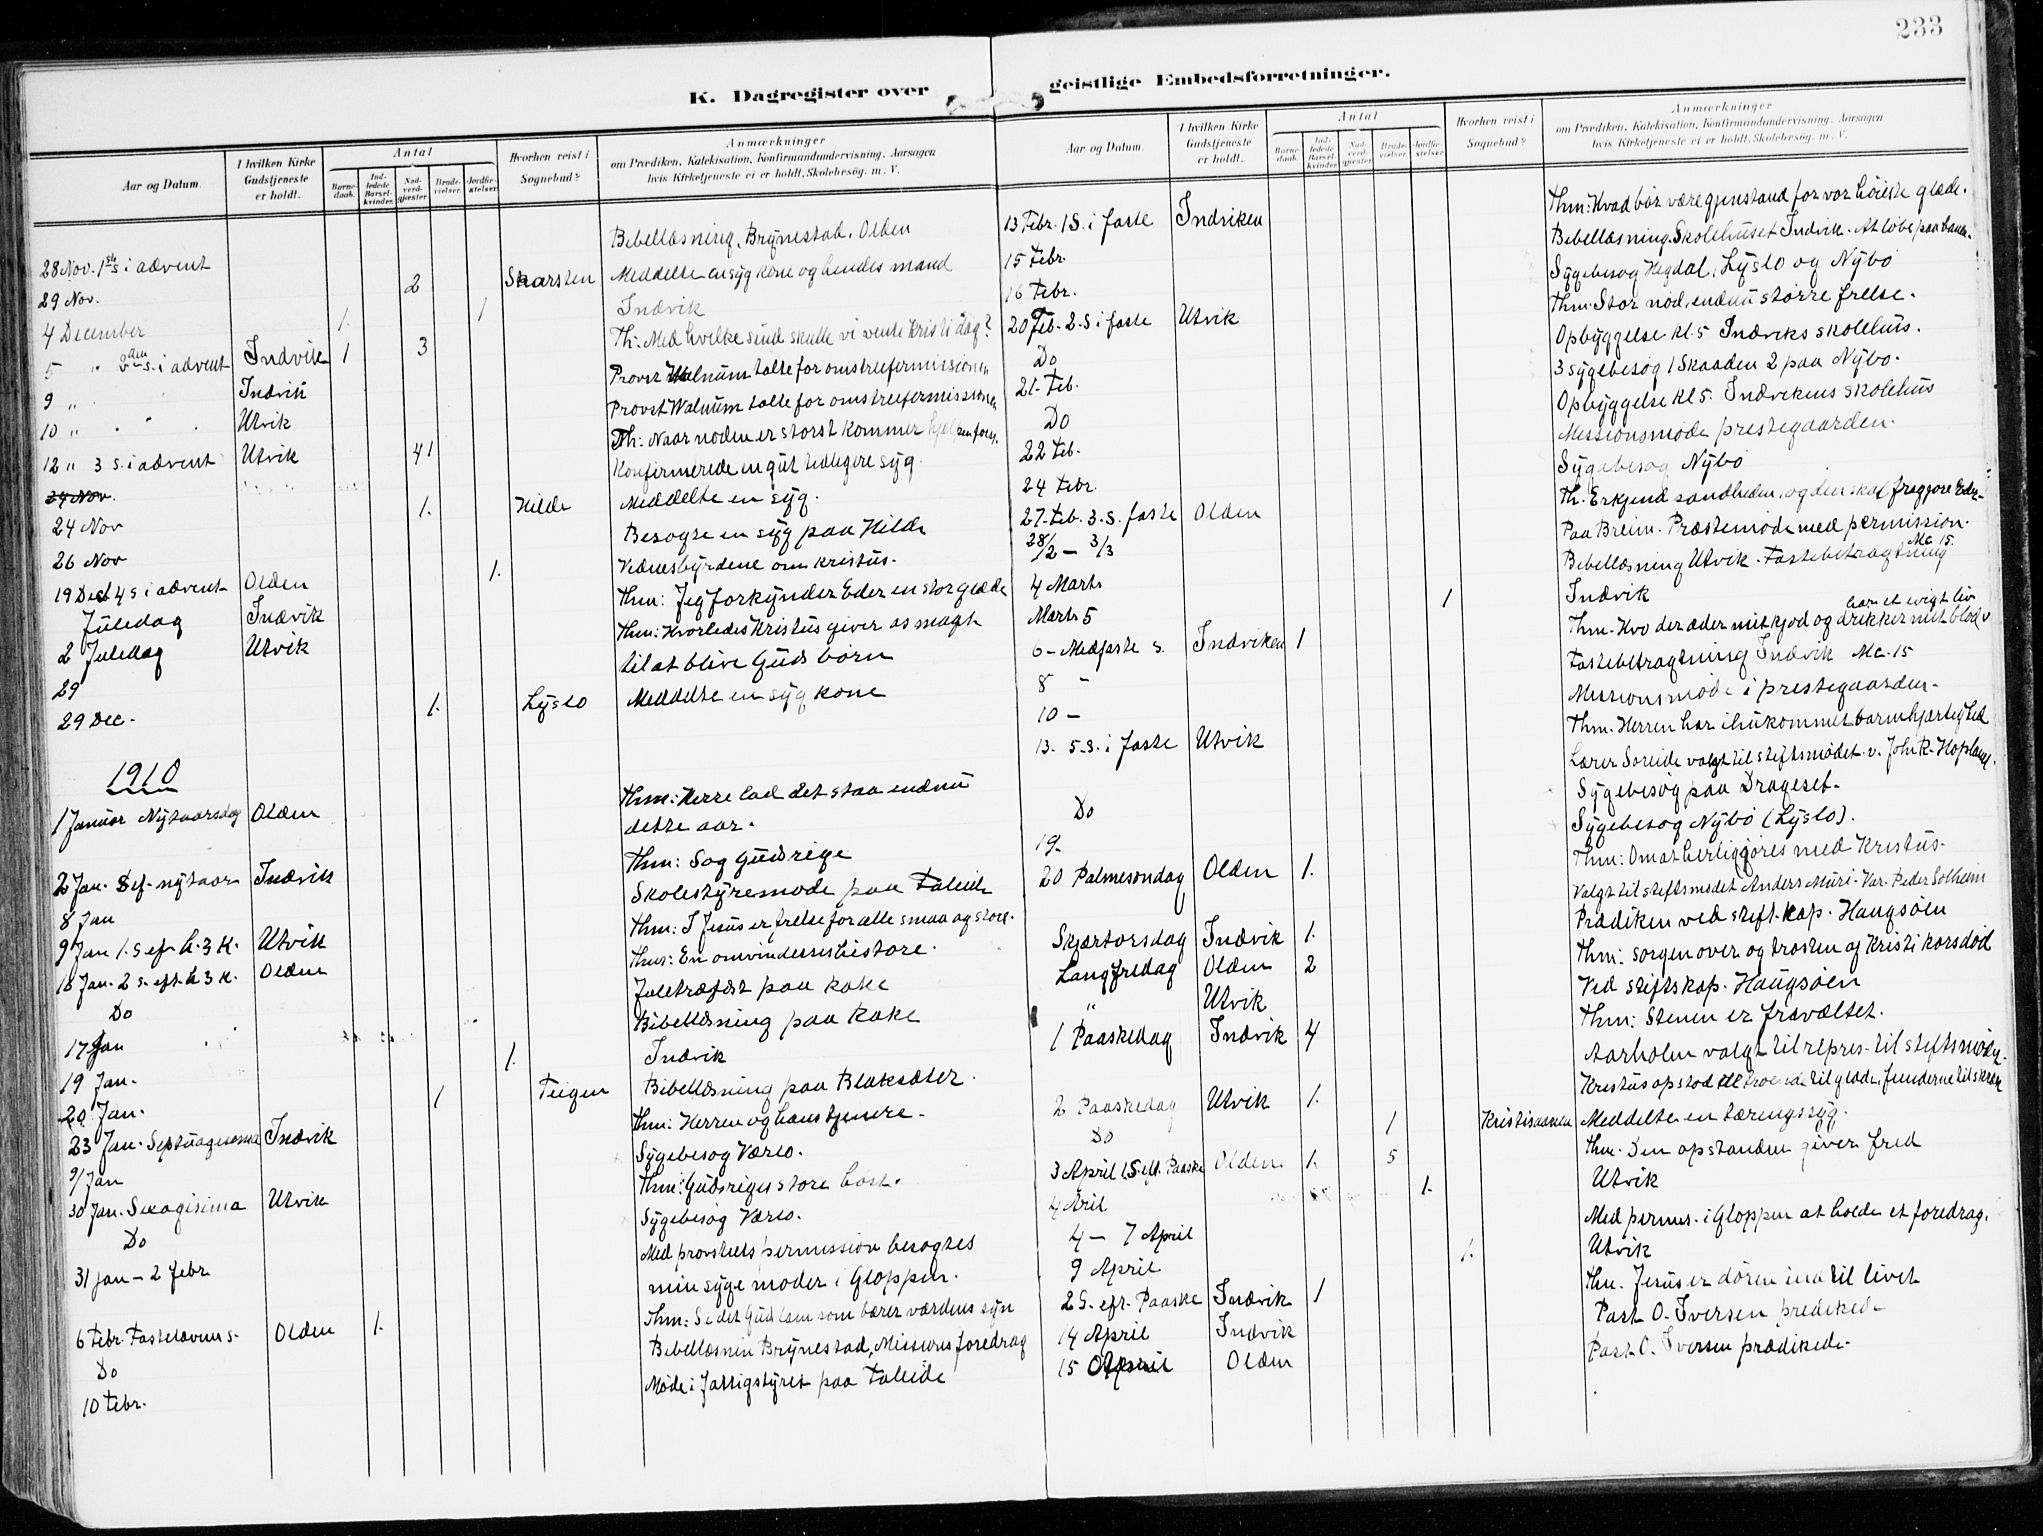 233
K. Dagregister over geistlige Embedsforretninger.
Aar og Datum.
I hvilken Kirke Gudstjeneste er holdt.
Antal
Barnedaab.
Indledede Barselkvinder.
Nadverdgjæster
Brudevielser.
Jordfæstelser.
Hvorhen reist i Sognebud?
Anmærkninger
om Prædiken, Katekisation, Konfirmandundervisning, Aarsagen
hvis Kirketjeneste ei er holdt, Skolebesøg. m. V.
28 Nov. 1ste s. i advent Bibellæsning, Brynestad. Olden
29 Nov. 2 Skarsten Meddelte en syg kone og hendes mand
4 December 1. 1 Indvik
5 " 2den s. i advent Indvik 1 3 Th: Med hvilke sind skulle vi vente Kristi dag?
9 " Indvik Provst Walnum talte for omstreifermissionen
10 " Utvik Provst Walnum talte for omstreifermissionen
12 " 3 s. i advent Utvik 41 Th: Naar nøden er størst kommer
Konfirmerede en gut tidligere syg.
24 Nov 1. Hilde Meddelte en syg.
26 Nov Besøgte en syg paa Hilde
19 Dec 4 s. i advent Olden 1. Vidnesbyrdene om Kristus.
Juledag Indvik Thm: Jeg forkynder Eder en stor glæde
2 Juledag Utvik Thm: Hvorledes Kristus giver os magt
29 til at blive Guds børn
29 Dec. 1. Lyslo Meddelte en syg kone
1910
1 Januar Nytaarsdag Olden Thm: Herre lad det staa endnu
dette aar.
2 Jan. S ef. nytaar Indvik Thm: Søg Guds rige
8 Jan Skolestyremøde paa Faleide
9 Jan 1. S efr h. 3 K. Utvik Thm: I Jesus er frelse for alle smaa og store.
16 Jan. 2 s. eft. h 3 K. Olden Thm: En omvindelseshistore.
Do Juletræfest paa Kake
17 Jan Bibellæsning paa Kake
19 Jan. 1. Indvik
20 Jan. 1 Teigen Bibellæsning paa Blaksæter.
23 Jan. Septuagesima Indvik Thm: Herren og hans tjenere.
Jan Sygebesøg Værlo.
30 Jan. Sexagisima Utvik Thm: Guds riges store høst.
Do Sygebesøg Værlo.
31 Jan – 2 Febr Med provstiets permission besøgtes
min syge moder i Gloppen.
6 Febr. Fastelavns s. Olden 1. Thm: Se det Guds lam som bærer værdens syn
Do Bibellæsnin Brynestad, Missionsforedrag
10 Febr. Møde i fattigstyret paa Faleide
Aar og Datum.
I hvilken Kirke Gudstjeneste er holdt.
Antal
Barnedaab.
Indledede Barselkvinder.
Nadverdgjæster
Brudevielser.
Jordfæstelser.
Hvorhen reist i Sognebud?
Anmærkninger
om Prædiken, Katekisation, Konfirmandundervisning, Aarsagen
hvis Kirketjeneste ei er holdt. Skolebesøg. m. V.
13 Febr. 1 S. i faste Indviken Thm: Hvad bør være gjenstand for vor høieste glæde.
15 Febr. Bibellæsning Skolehuset Indvik. At løbe paa banen.
16 Febr. Sygebesøg Hegdal, Lyslo og Nybø
20 Feb. 2. S i faste Utvik Thm: Stor nød, endnu større frelse.
Do Opbyggelse kl 5 Indviks skolehus.
21. Feb. 3 sygebesøg 1 Skaaden 2 paa Nybø.
Do Opbyggelse kl 5. Indvikens skolehus
22 Feb. Missionsmøde prestegaarden.
24 Febr. Sygebesøg Nybø
27. Feb. 3. s. faste Olden Th. Erkjend sandheden, og den skal frigjøre Eder.
28/2 – 3/3 Paa Breim. Præstemøde med permission.
4 Marts Bibellæsning Utvik. Fastebetragtning Mc 15.
Marts 5 1 Indvik
6 – Midfaste s. Indviken 1 Thm. Hvo der æder mit kjød og drikker mit blod har et evigt liv
8 – Fastebetragtning Indvik Mc. 15
10 – Missionsmøde i prestegaarden.
13. 5. s. i faste Utvik Thm. Herren har ihukommet barmhjærtighed
Lærer Soreide valgt til stiftsmødet v. Joh. R. Hopland.
Do Sygebesøg paa Drageset.
19. Sygebesøg Nybø (Lyslo).
20 Palmesøndag Olden 1. Thm: Om at herliggøres med Kristus.
Valgt til stiftsmødet Anders Muri. Var. Peder Solheim
Skjærtorsdag Indvik 1. Prædiken ved stift. kap. Haugsøen
Langfredag Olden 2 Thm: Sorgen over og trøsten af Kristi korsdød
" Utvik Ved stiftskap. Haugsøen
1 Paaskedag Indvik 4 Thm: Stenen er fravæltet.
Aarholen valgt til repres. til stiftsmødet.
2 Paaskedag Utvik 1. Kristus opstod de troende til glæde, fienderne til skræk
Do 1 Kristiaanen Meddelte en tæringssyg.
3 April 1 S. eft. Paaske Olden 1. 5 Thm. Den opstandne giver fred
4 April 1. Utvik
4 – 7 April Med permis. i Gloppen at holde et foredrag.
9 April 1. Utvik
2 S. eft. Paaske Indvik 1 Thm. Jesus er døren ind til livet
14 April Indvik Past. O. Iversen prædiked.
15 April Olden Past. O. Iversen prædikede.